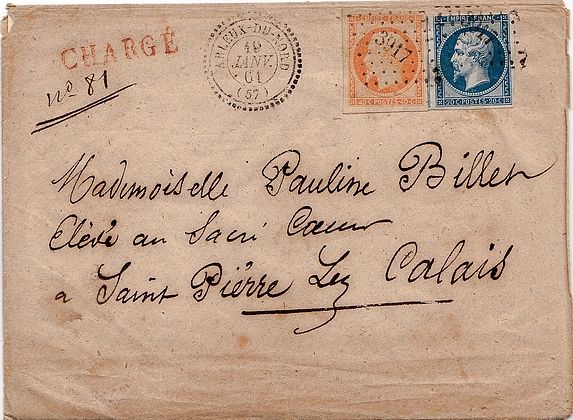 CHARGÉ
nº 81
ARLEUX-DU-NORD
19
JANV.
61
(57)
EMPIRE FRANC.
40 C POSTES 40 C
20 C POSTES 20 C
Mademoiselle Pauline Billet
Elévé au Sacré Cœur
a Saint Piérre Lez Calais